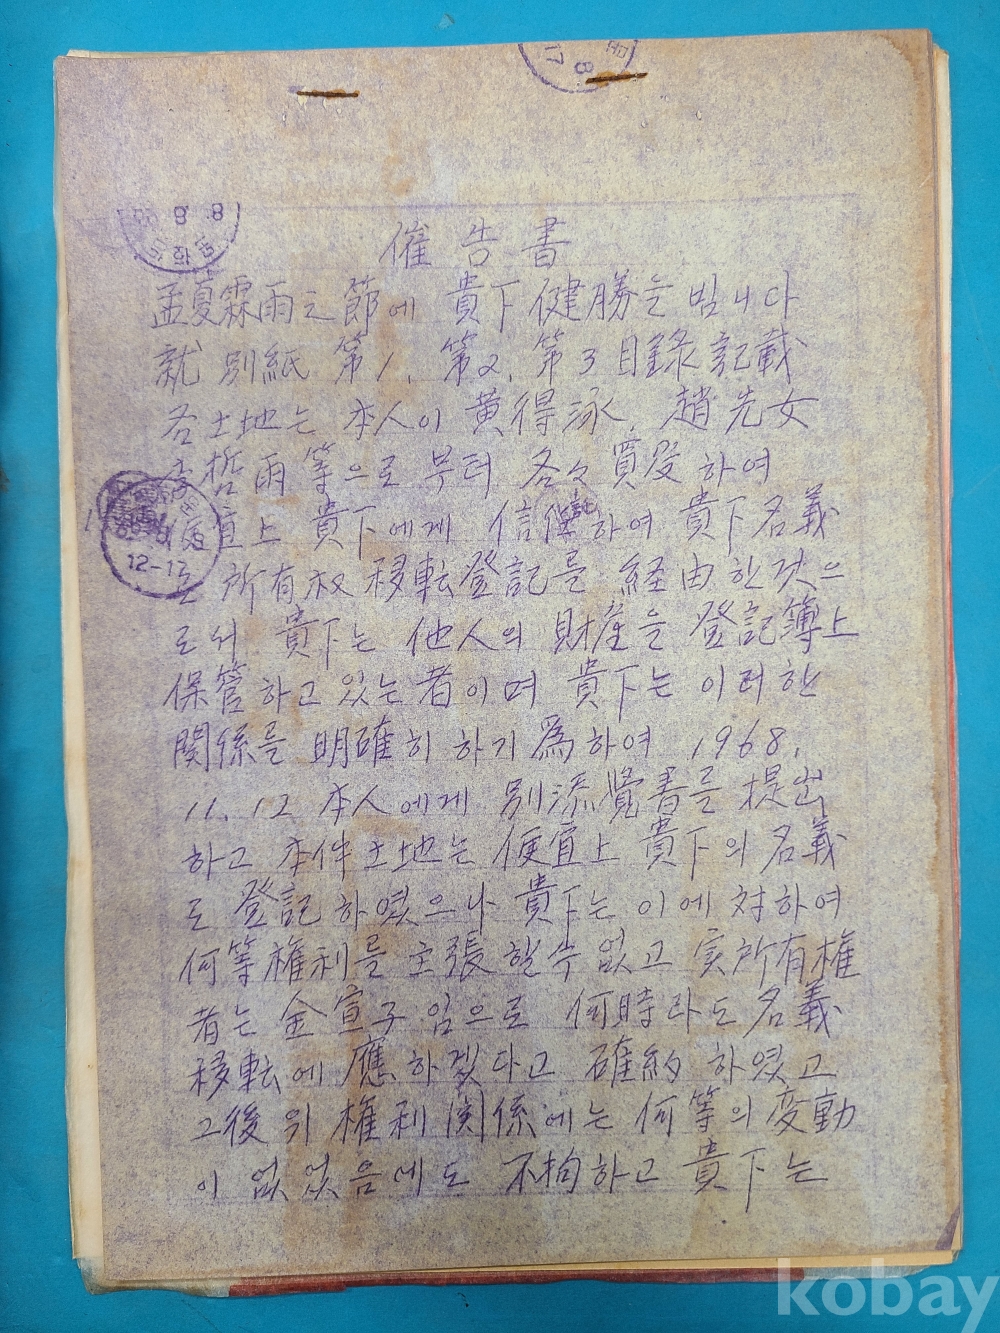 催告書
孟夏霖雨之節에 貴下 健勝는 빕니다
就 別紙 第1, 第2, 第3 目錄記載
各土地는 本人이 黃得泳, 趙先女
李哲雨等으로부터 各々 買受하여
便宜上 貴下에게 信託하여 貴下名義
로 所有权 移転登記를 経由한것으
로서 貴下는 他人의 財産을 登記簿上
保管하고 있는者이며 貴下는 이러한
関係를 明確히 하기 爲하여 1968.
11. 12 本人에게 別添覺書를 提出
하고 本件土地는 便宜上 貴下의 名義
로 登記하였으나 貴下는 이에 対하여
何等權利를 主張할수 없고 実所有権
者는 金宣子임으로 何時라도 名義
移転에 應하겠다고 確約하였고
그後 위 權利関係에는 何等의 変動
이 없었음에도 不拘하고 貴下는
12-17
kobay